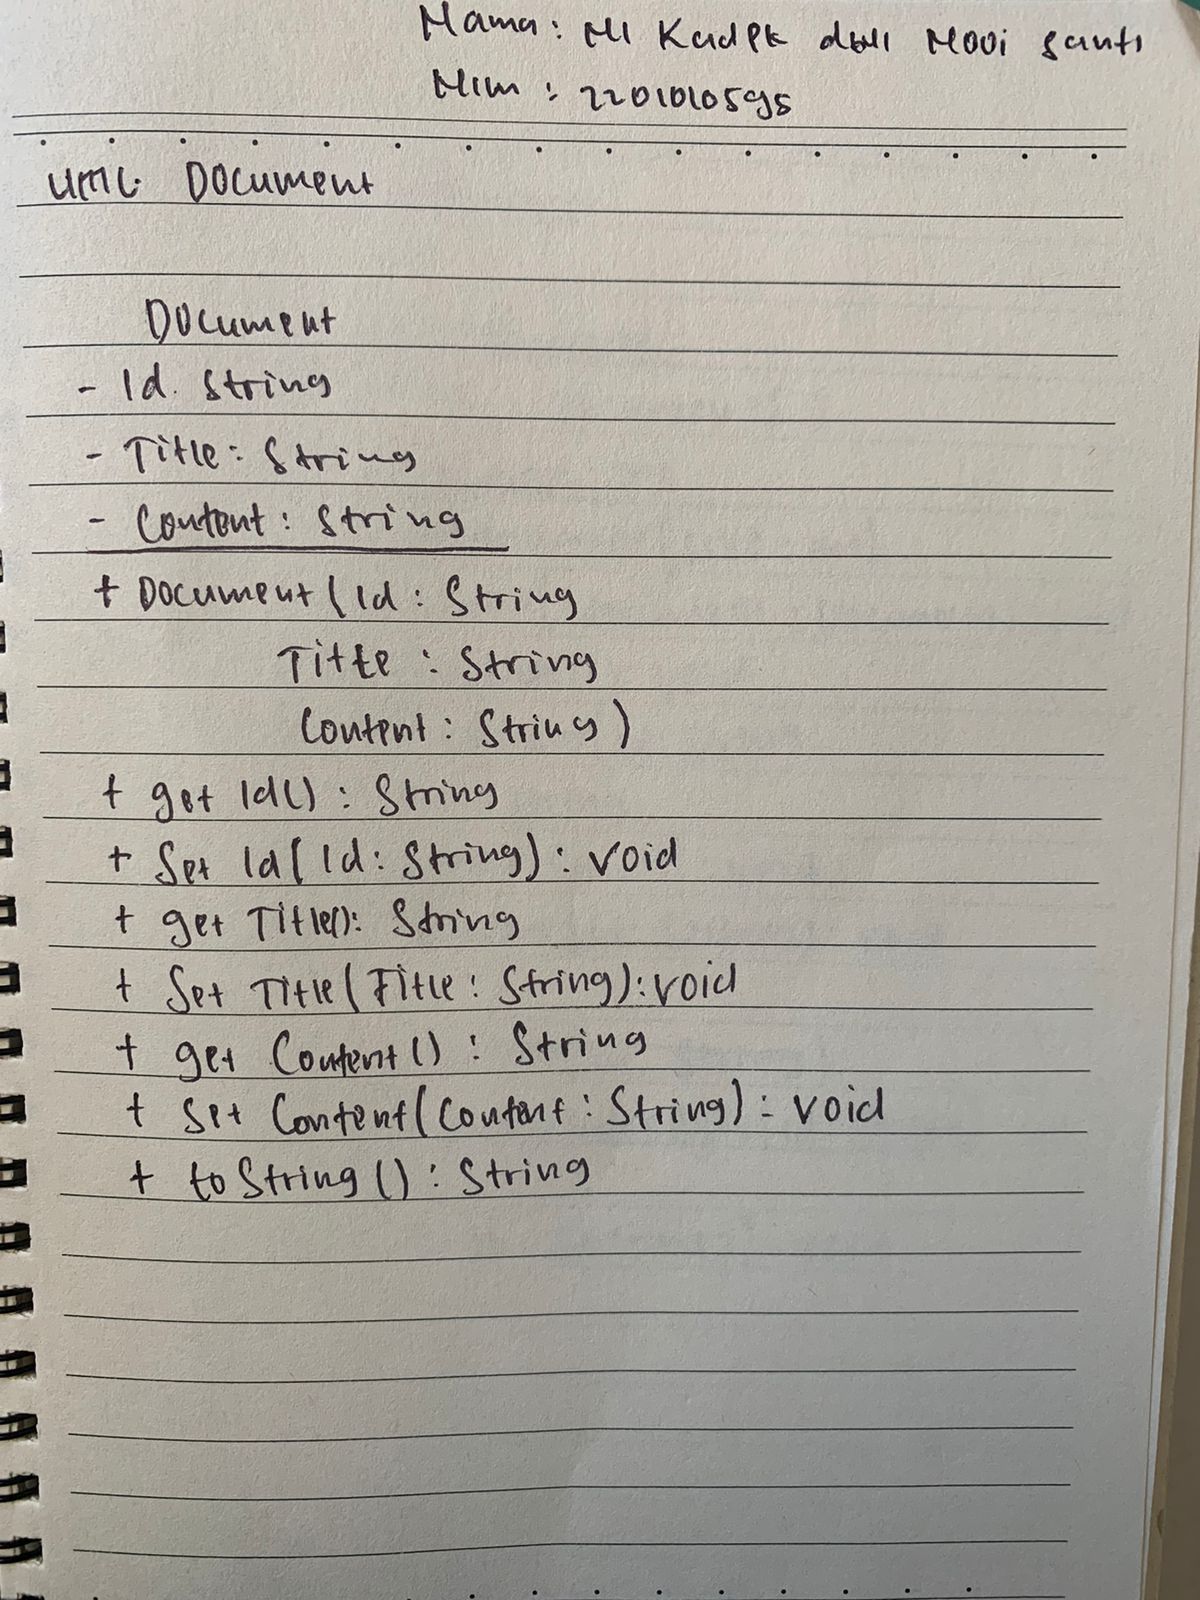 Nama : Ni Kadek dwi Novi santi
Nim : 2201010595
UML. Document
Document
- Id. String
- Title : String
- Content : String
+ Document ( Id : String
Title : String
Content : String )
+ get Id() : String
+ Set Id( Id : String) : void
+ get Title(): String
+ Set Title( Title : String) : void
+ get Content () : String
+ Set Content( Content : String) : void
+ to String () : String